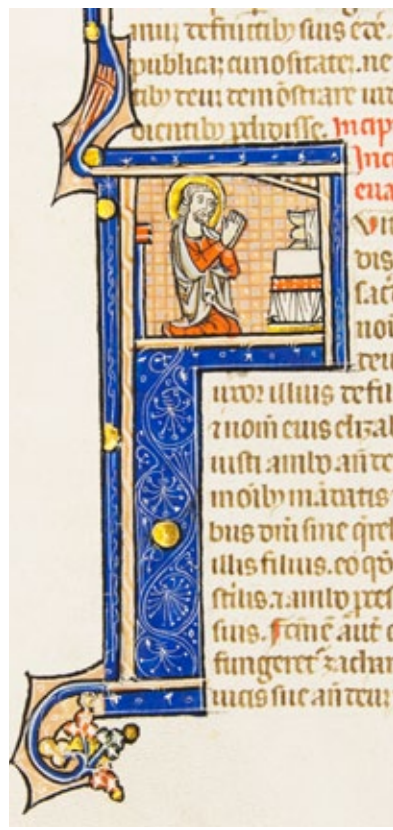 mur de fructibus suis ede
publicaz curiositatez. ne
tib; deuz demōstrare uid
dientib; pdidisse. Incip
Inci
eua
Vit
dis
sac
noi
deu
uxor illius de fili
⁊ nom̄ eius elizab
iusti ambo añ de
in oīb; mādatis
bus dnī sine qrel
illis filius. eo qō
stilis. ⁊ ambo pces
suis. Fcm̄ ē aut̄ c
fungeret̄ zachar
uicis sue añ deuz